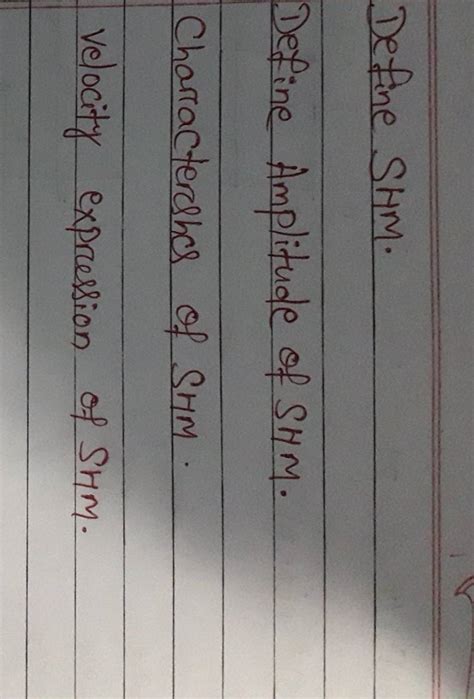 Define SHM.
Define Amplitude of SHM.
Characteristics of SHM.
velocity expression of SHM.